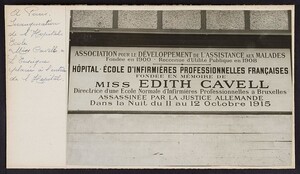 A Paris
Inauguration
de l'Hôpital
Ecole
Miss Cavell
l'Enseigne
de l'Hôpital
ASSOCIATION POUR LE DÉVELOPPEMENT DE L'ASSISTANCE AUX MALADES
Fondée en 1900 Reconnue d'Utilité Publique en 1908
HÔPITAL-ÉCOLE D'INFIRMIÈRES PROFESSIONNELLES FRANÇAISES
FONDÉE EN MÉMOIRE DE
MISS EDITH CAVELL
Directrice d'une École Normale d'Infirmières Professionnelles à Bruxelles
ASSASSINÉE PAR LA JUSTICE ALLEMANDE
Dans la Nuit du 11 au 12 Octobre 1915